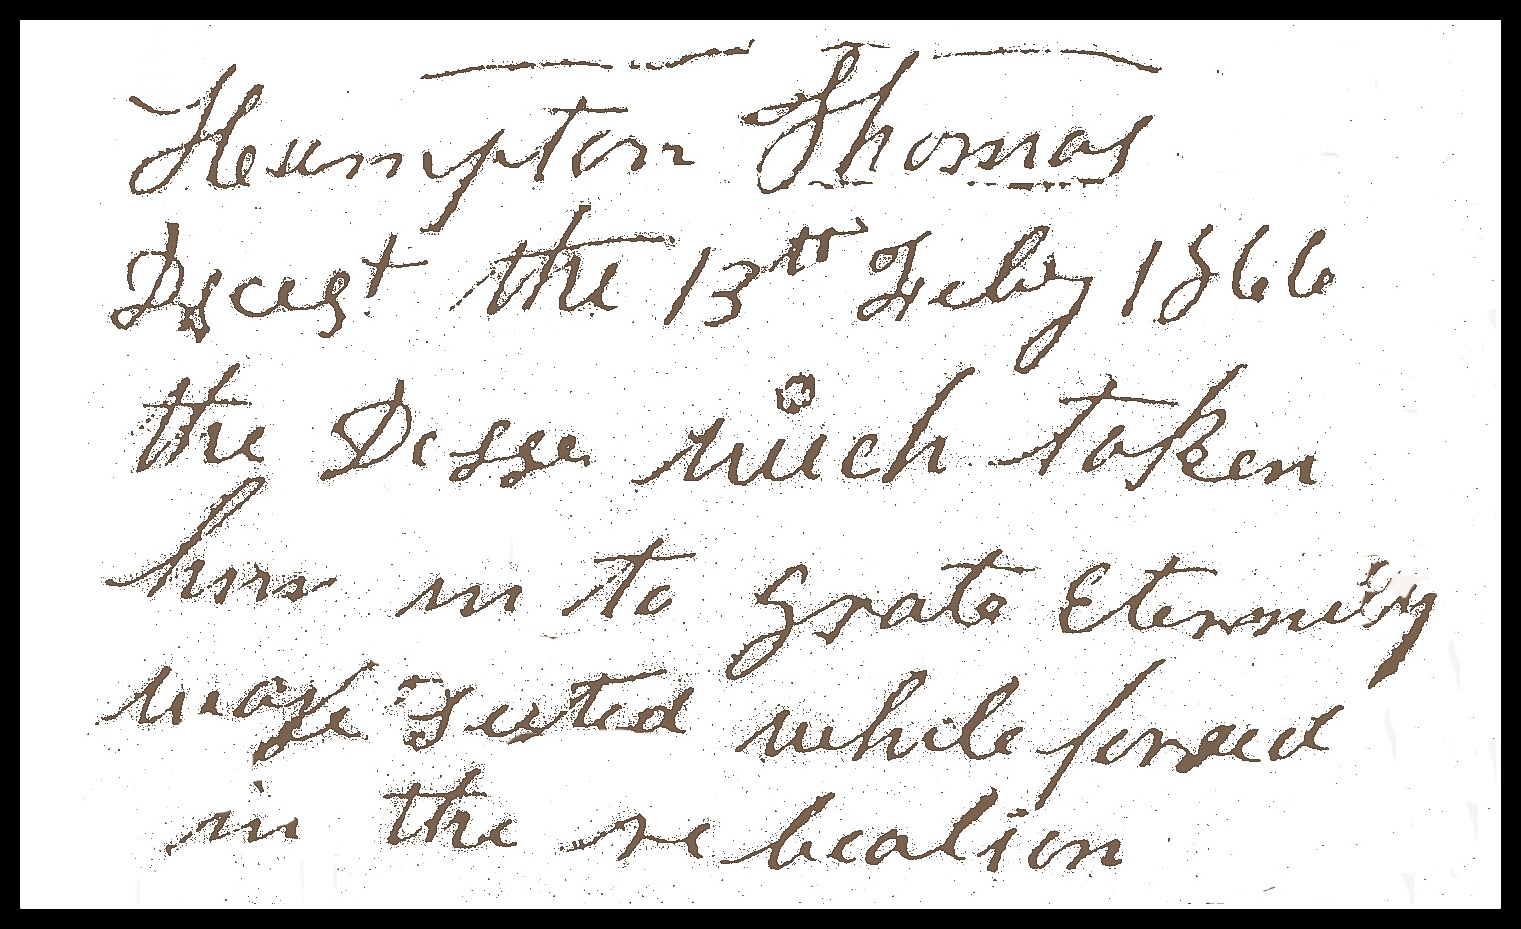 Humpton Thomas
Decest the 13th Feby 1866
the Desse which taken
him in to grate Eternity
was
while forsed
in the rebealion